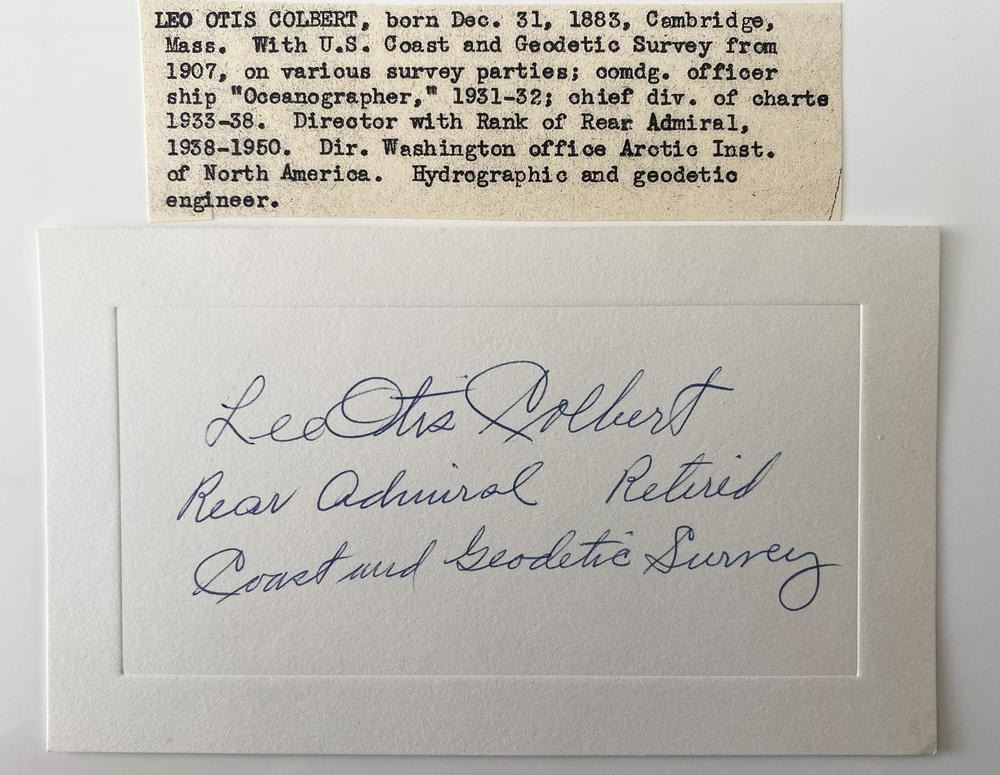 LEO OTIS COLBERT, born Dec. 31, 1883, Cambridge,
Mass. With U.S. Coast and Geodetic Survey from
1907, on various survey parties; comdg. officer
ship "Oceanographer," 1931-32; chief div. of charts
1933-38. Director with Rank of Rear Admiral,
1938-1950. Dir. Washington office Arctic Inst.
of North America. Hydrographic and geodetic
engineer.
Leo Otis Colbert
Rear Admiral Retired
Coast and Geodetic Survey